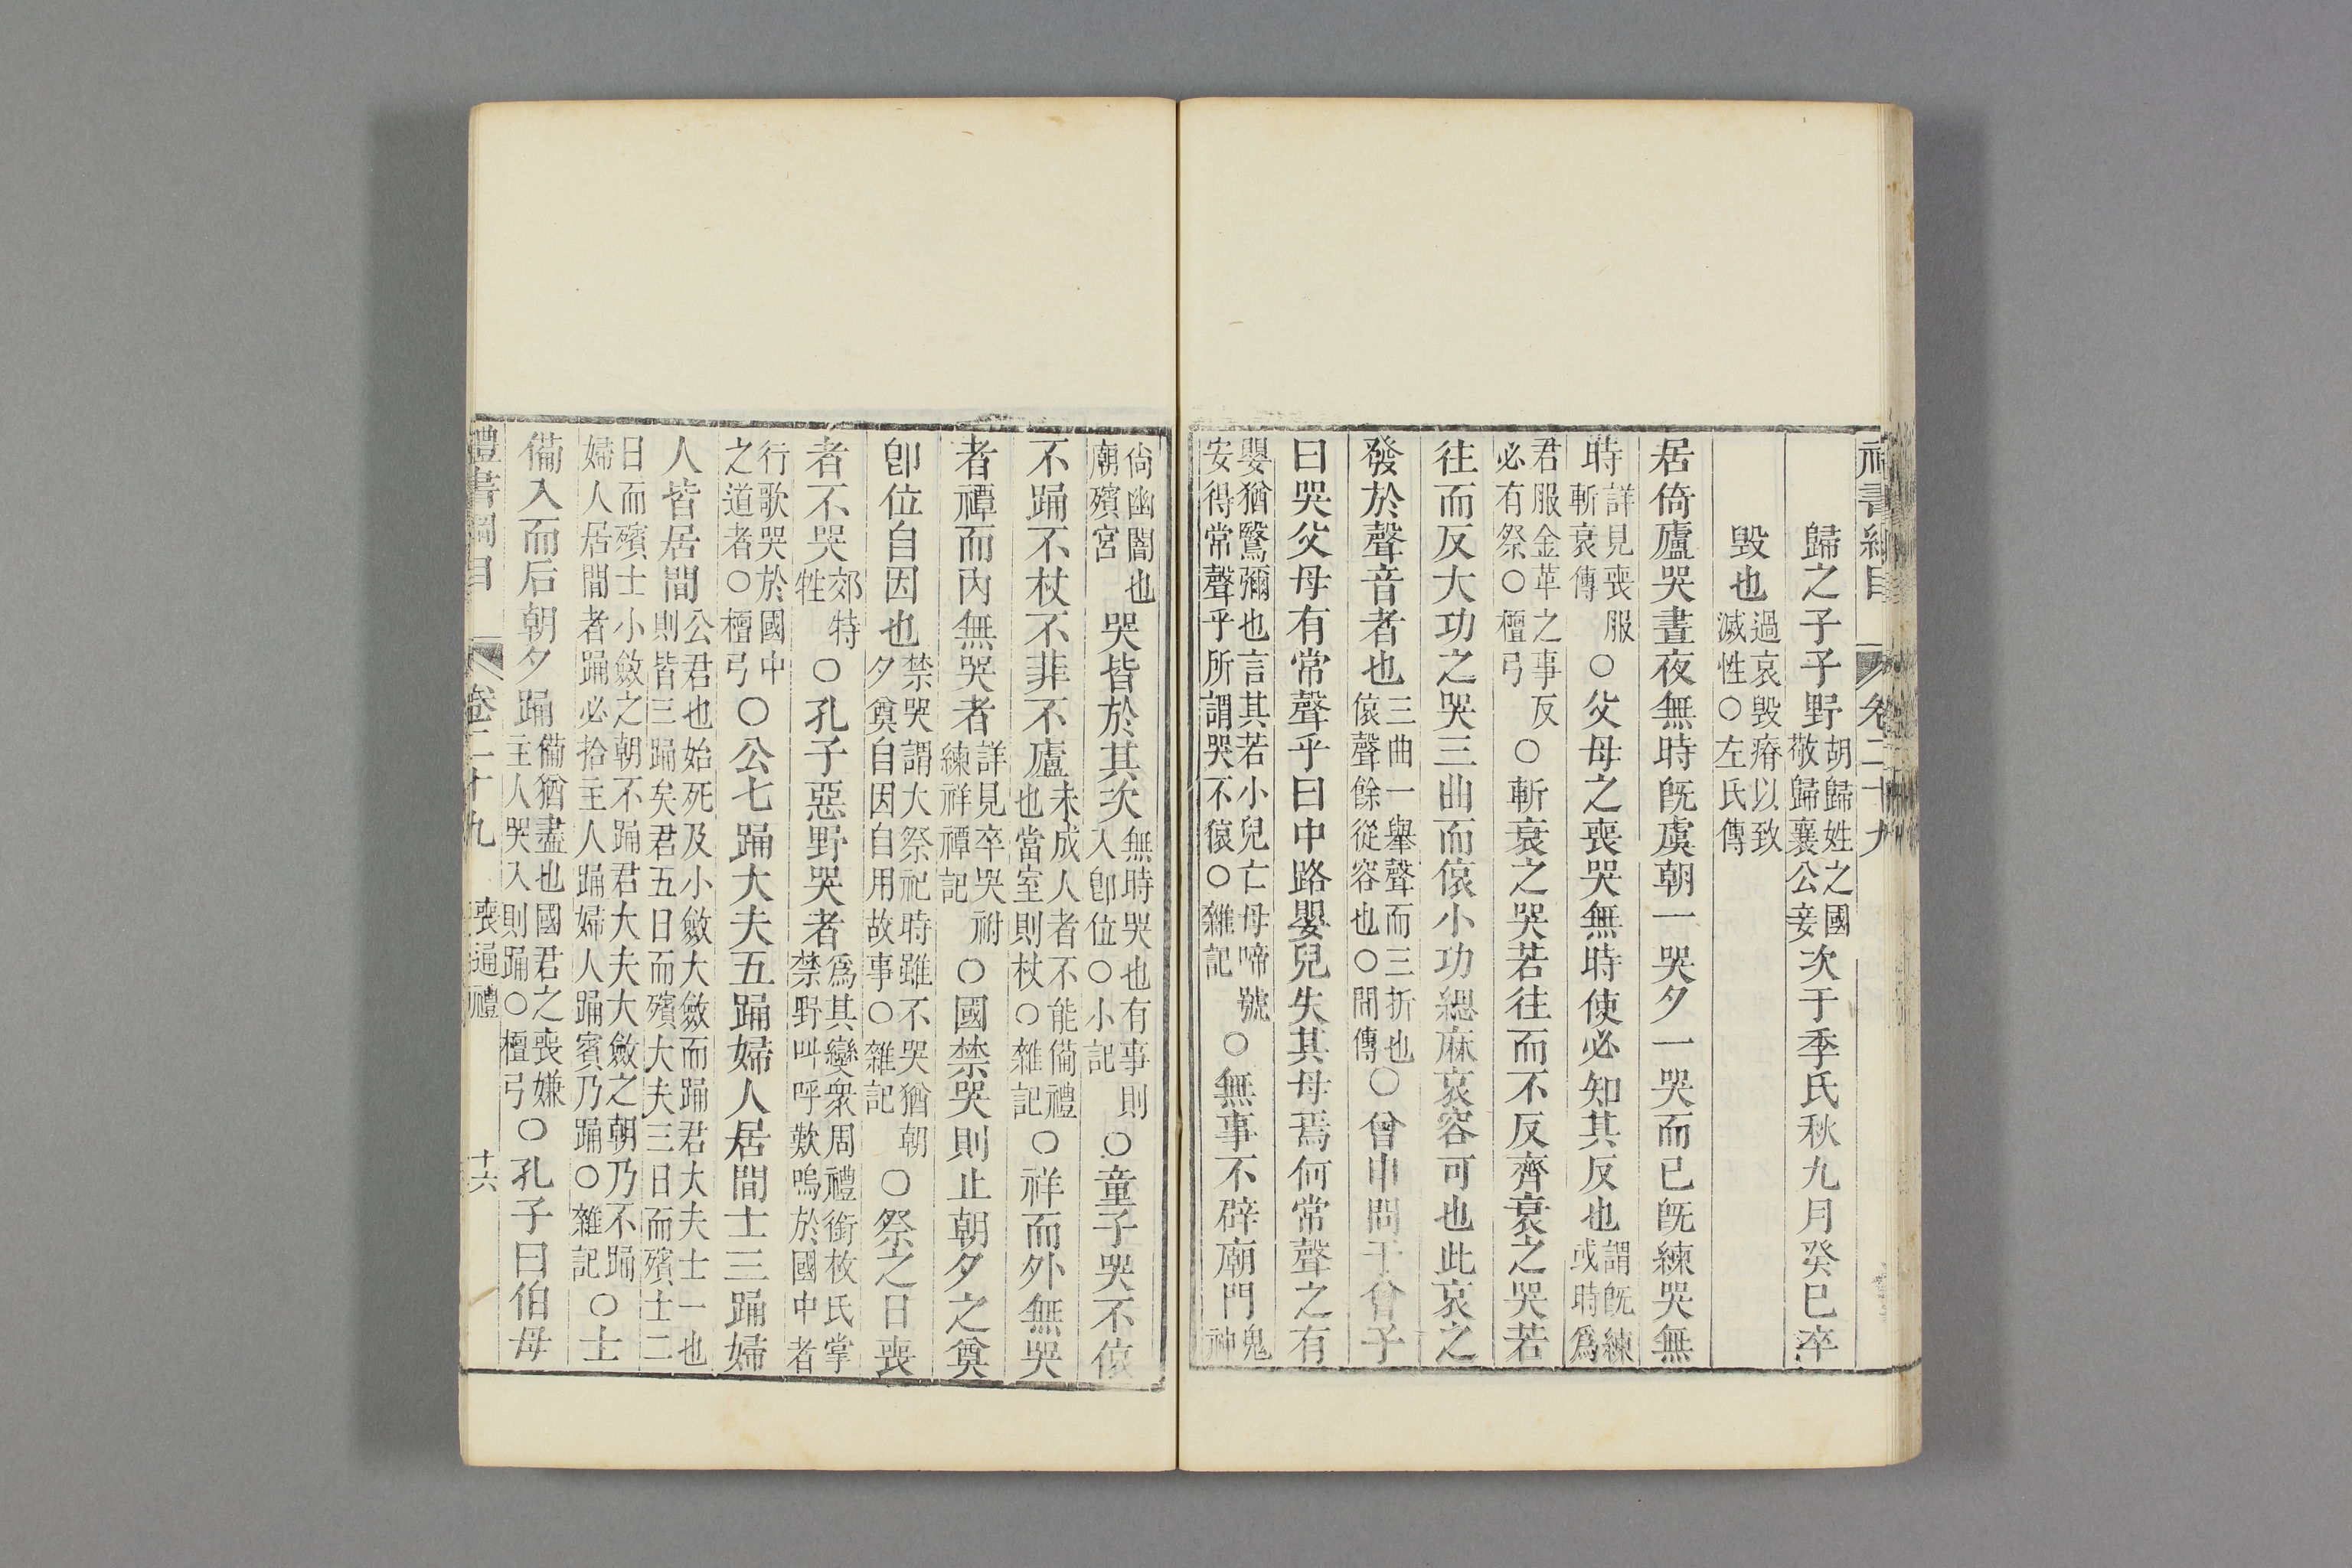 歸之子子野胡歸姓之國敬歸襄公妾次于季氏秋九月癸巳卒
毀也過哀毀瘠以致滅性○左氏傳
居倚廬哭晝夜無時旣虞朝一哭夕一哭而已旣練哭無
時詳見喪服斬衰傳○父母之喪哭無時使必知其反也謂旣練或時爲
君服金革之事反必有祭○檀弓○斬衰之哭若往而不反齊衰之哭若
往而反大功之哭三曲而偯小功緦麻哀容可也此哀之
發於聲音者也三曲一舉聲而三折也偯聲餘從容也○閒傳○曾申問于曾子
曰哭父母有常聲乎曰中路嬰兒失其母焉何常聲之有
嬰猶鷖彌也言其若小兒亡母啼號安得常聲乎所謂哭不偯○雜記○無事不辟廟門鬼神
尙幽闇也廟殯宮哭皆於其次無時哭也有事則入卽位○小記○童子哭不偯
不踊不杖不菲不廬未成人者不能備禮也當室則杖○雜記○祥而外無哭
者禫而內無哭者詳見卒哭祔練祥禫記○國禁哭則止朝夕之奠
卽位自因也禁哭謂大祭祀時雖不哭猶朝夕奠自因自用故事○雜記○祭之日喪
者不哭郊特牲○孔子惡野哭者爲其變衆周禮銜枚氏掌禁野叫呼歎嗚於國中者
行歌哭於國中之道者○檀弓○公七踊大夫五踊婦人居間士三踊婦
人皆居間公君也始死及小斂大斂而踊君大夫士一也則皆三踊矣君五日而殯大夫三日而殯士二
日而殯士小斂之朝不踊君大夫大斂之朝乃不踊婦人居間者踊必拾主人踊婦人踊賓乃踊○雜記○士
備入而后朝夕踊備猶盡也國君之喪嫌主人哭入則踊○檀弓○孔子曰伯母
禮書綱目 卷二十九 喪通禮 十六